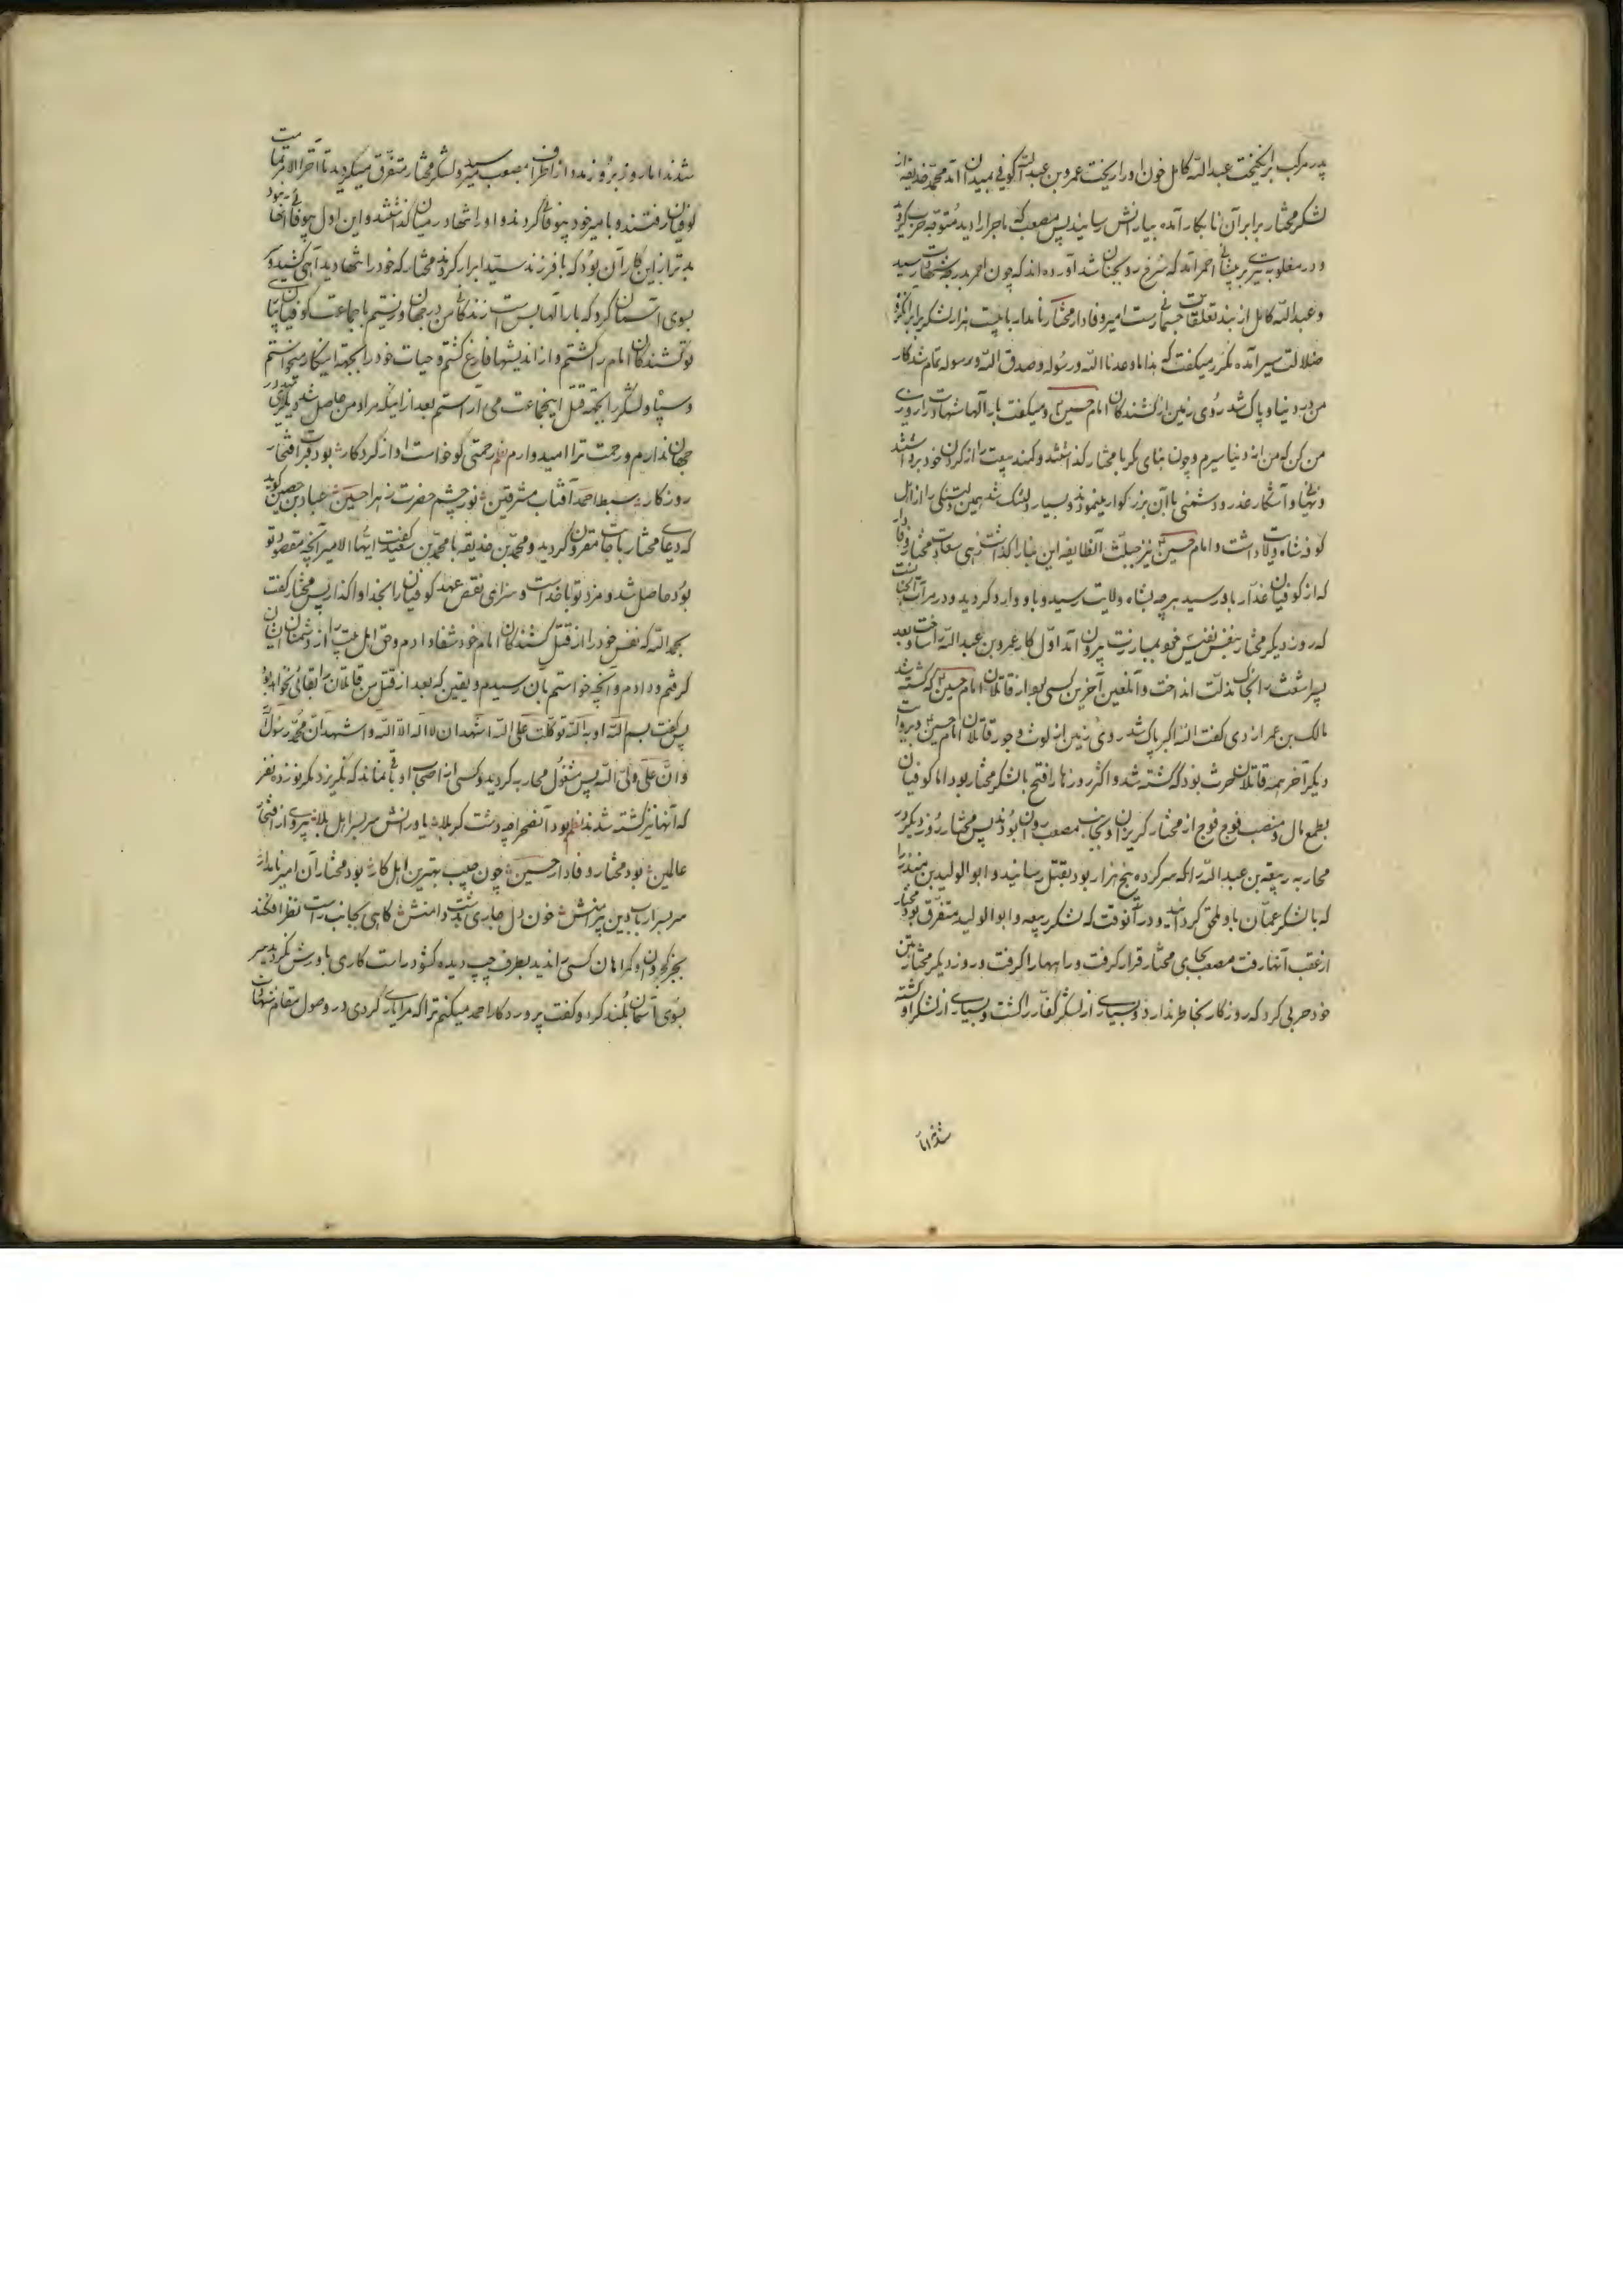 پدر مرکب برانگیخت عبداللّه کامل خون او را ریخت عمرو بن عبداللّه کوفی بمیدان آمد محمد حذیفه از
لشکر مختار برابر آن نابکار آمده بیارانش رسانید پس مصعب که ماجرا را دید متوجه حرب گردید
و در مغلوبه تیری بر پیشانی احمر آمد که مرغ روح بجنان شد آورده‌اند که چون احمر بدرجه شهادت رسید
و عبداللّه کامل از بند تعلقات جسمانی رست امیر وفادار مختار نامدار با بیست هزار لشکر برابر لشکر
ضلالت سیر آمده مکرر میگفت که هذا ما وعدنا اللّه و رسوله و صدق اللّه و رسوله تمام شد کار
من در دنیا و پاک شد روی زمین از کشندگان امام حسین و میگفت بار آلها شهادت را روزی
من کن که من از دنیا سیرم و چون بنای مکر با مختار گذاشتند و کمند بیعت را از گردن خود برداشتند
و نهانی و آشکار غدر و دشمنی با آن بزرگوار مینمودند و بسیار دلتنک شد همین دلتنکی را از اهل
کوفه شاه ولایت داشت و امام حسین نیز جبلّت آنطایفه این بنا را گذاشت زهی سعادت مختار وفادار
که از کوفیان غدّار باو رسید هرچه بشاه ولایت رسید و باو وارد گردید و در مرآت الجنان است
که روز دیگر مختار بنفس نفیس خود بمبارزت بیرون آمد اول کار عمرو بن عبداللّه را ساخت و بعد
پسر اشعث را بخاک مذلت انداخت و آنلعین آخرین کسی بود از قاتلان امام حسین که کشته شد
مالک بن عمر ازدی گفت اللّه اکبر پاک شد روی زمین از لوث وجود قاتلان امام حسین و بروایت
دیگر آخر همه قاتلان حرث بود که کشته شد و اکثر روزها را فتح با لشکر مختار بود اما کوفیان
بطمع مال و منصب فوج فوج از مختار گریزان و بجانب مصعب روان بودند پس مختار روز دیگر در
محاربه ربیعه بن عبداللّه را که سرکرده پنج هزار بود بقتل رسانید و ابو الولید بن منذر را
که با لشکر عمّان باو ملحق گردانید و در آنوقت که لشکر ربیعه و ابو الولید متفرق بود مختار
از عقب آنها رفت مصعب بجای مختار قرار گرفت و راهها را گرفت و روز دیگر مختار بتن
خود حربی کرد که روزگار بخاطر ندارد و بسیاری از لشکر کفّار را کشت و بسیاری از لشکر او کشته
شدند اما
شدند اما روز بروز مدد از اطراف بمصعب میرسید و لشکر مختار متفرق میگردید تا آخر الامر تمامت
کوفیان رفتند و با امیر خود بیوفائی کردند و او را تنها در میان گذاشتند و این اول بیوفائی آنها نبود
بدتر از این کار آن بود که با فرزند سید ابرار کردند مختار که خود را تنها دید آهی کشید و
بسوی آسمان کرد که بار آلها بس است زندگانی من در جهان و زیستم با جماعت کوفیان بتائید
تو کشندگان امام را کشتم و از اندیشها فارغ گشتم و حیات خود را بجهة اینکار میخواستم
و سپاه و لشکر را بجهة قتل اینجماعت می آراستم بعد از اینکه مراد من حاصل شد دیگر آرزوئی در
جهان ندارم و رحمت ترا امیدوارم نظم رحمتی کو خواست او از کردگار بود قرب افتخار
روزگار سبط احمد آفتاب مشرقین نور چشم حضرت زهرا حسین عباد بن حصین گوید
که دعای مختار باجابت مقرون گردید و محمد بن حذیفه با محمد بن سعید گفت ایها الامیر آنچه مقصود تو
بود حاصل شد و مزد تو با خداست و سزای نقض عهد کوفیان را بخدا واگذار پس مختار گفت
بحمد اللّه که نفس خود را از قتل کشندگان امام خود شفا دادم و حق اهل بیت را از دشمنان ایشان
گرفتم و دادم و آنچه خواستم بآن رسیدم و یقین که بعد از قتل من قاتلان را بقائی نخواهد بود
پس گفت بسم اللّه و باللّه توکلت علی اللّه اشهد ان لا اله الا اللّه و اشهد ان محمد رسول اللّه
و ان علی ولی اللّه پس مشغول محاربه گردید و کسی از اصحاب او باقی نماند که نگریزد مگر نوزده نفر
که آنها نیز کشته شدند نظم بود آنصحرا چه دشت کربلا یاورانش سربسر اهل بلا پیرو از افتخار
عالمین بود مختار وفادار حسین چون حبیب بهترین اهل کار بود مختار آن امیر نامدار
سربسر ارباب دین پیرامنش خون دل جاری بدشت دامنش گاهی بجانب راست نظر افکند
بجز کجروان و گمراهان کسی را ندید بطرف چپ دیده کشود راست کاری یاورش نگردید سر
بسوی آسمان بلند کرد و گفت پروردگارا حمد میکنم ترا که مرا یاری کردی در وصول مقام شهادت